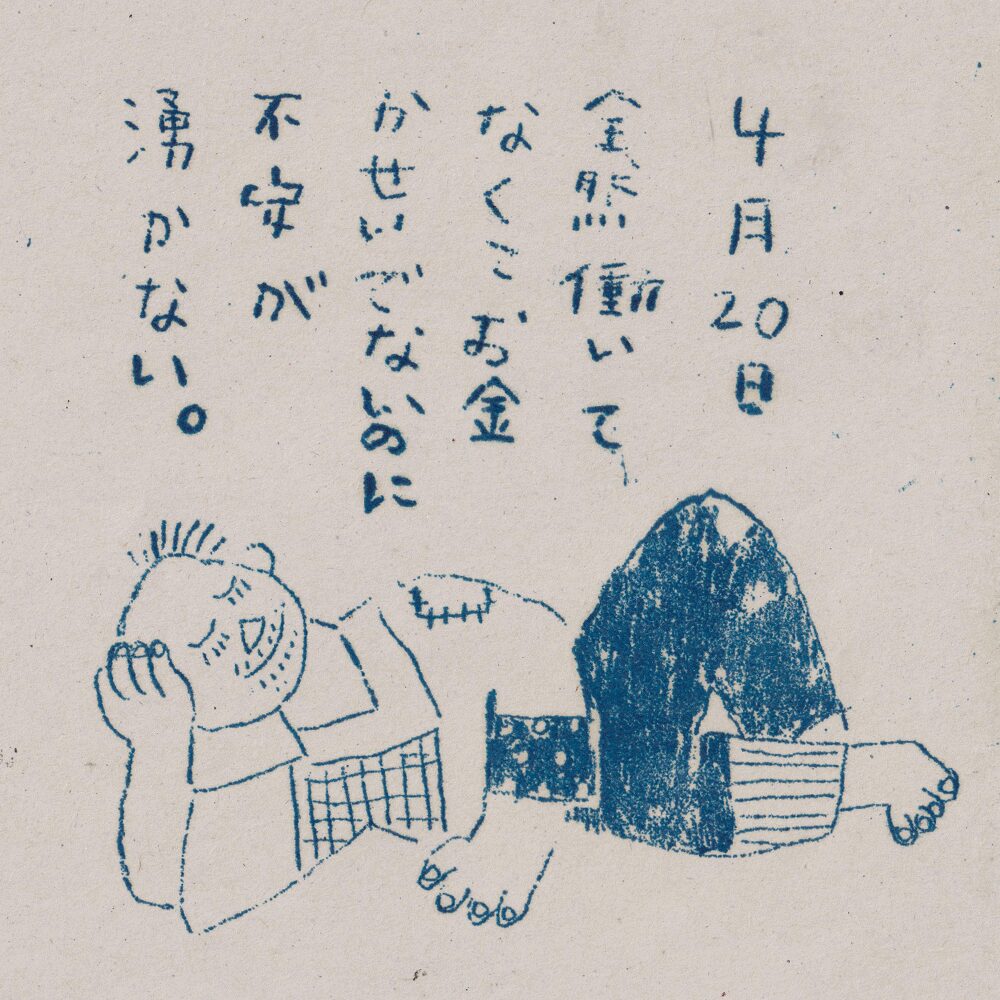 4月20日
全然働いて
なくてお金
かせいでないのに
不安が
湧かない。